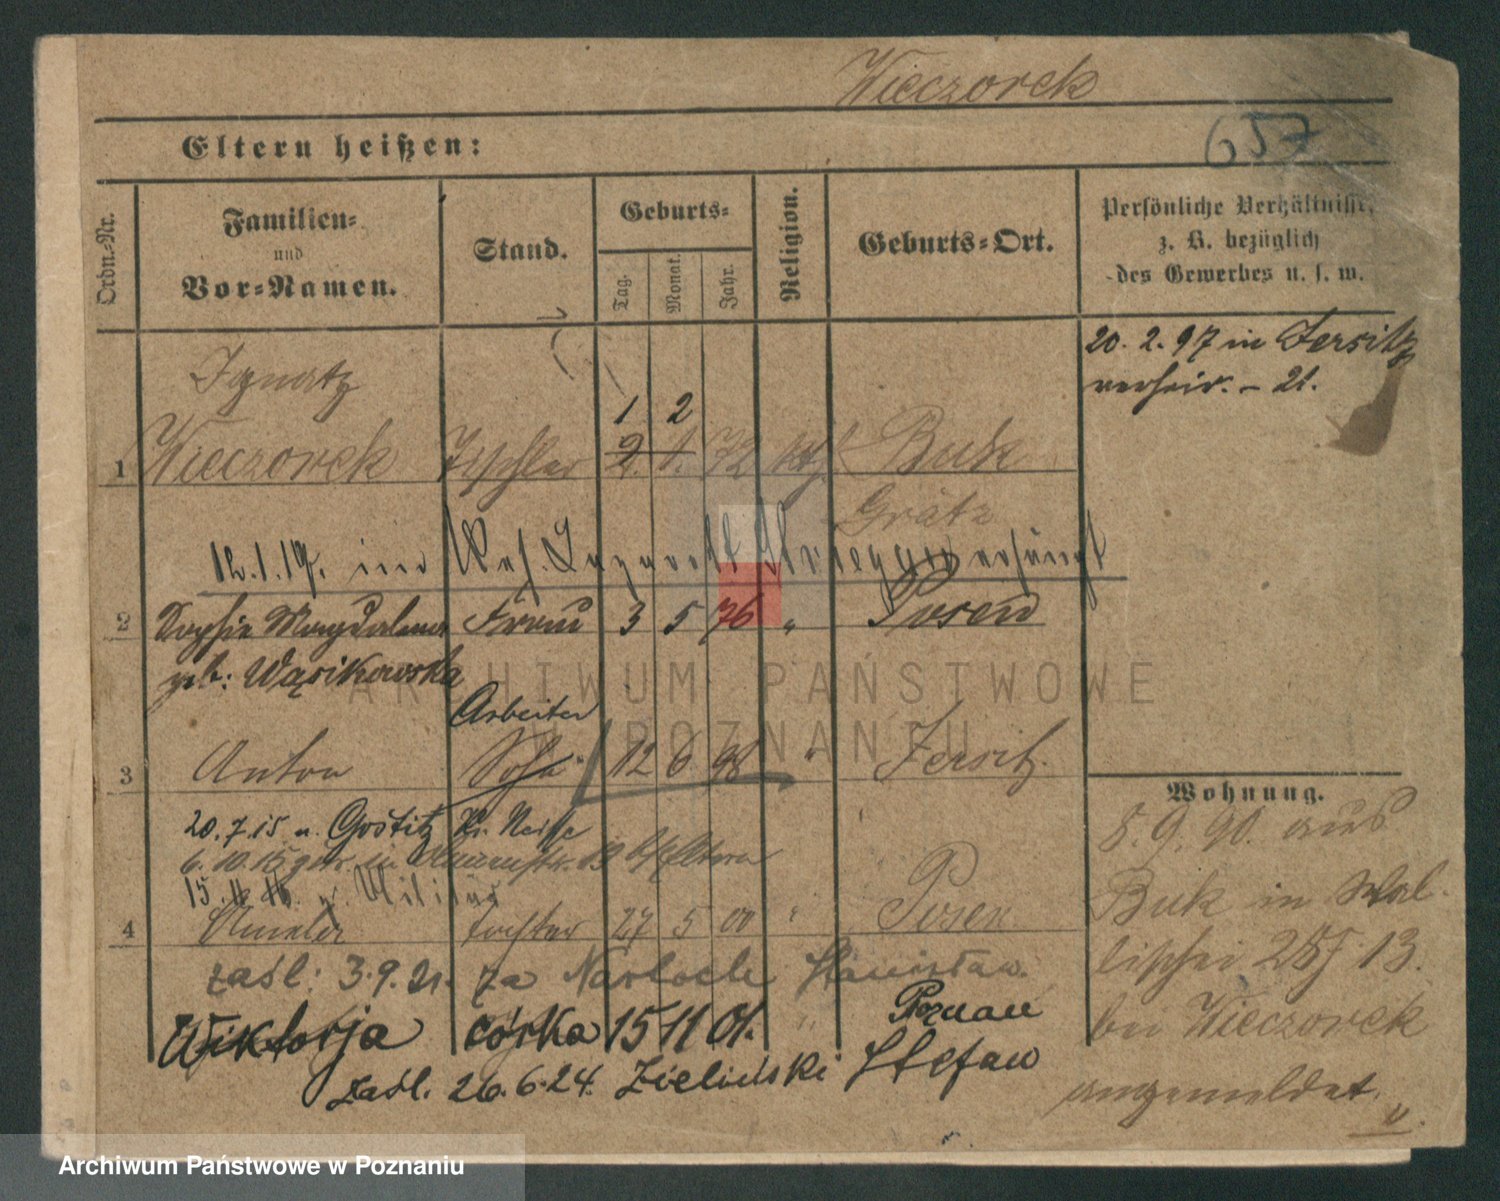 Wieczorek
657
Eltern heißen:
Ordn.-Nr.
Familien-
und
Vor-Namen.
Stand.
Geburts-
Tag.
Monat.
Jahr.
Religion.
Geburts-Ort.
Persönliche Verhältnisse,
z. B. bezüglich
des Gewerbes u. s. w.
20. 2. 97 in Jersitz
verheir. - 21.
Ignatz
1 2
1 Wieczorek Tischler 2. 1. 72 kth Buk
Grätz
12.1.19. im Res. Lazarett
2 Sophie Magdalena Frau 3 5 76 " Posen
geb: Wąsikowska
Arbeiter
3 Anton Sohn 12 6 98 " Jersitz.
20.7.15 n. Gostitz Kr. Neisse
6.10.15 in 19 Eltern
15.11.16. z. Militär
4 Tochter 27 5 00 " Posen
zaśl: 3.9.21. za Stanisław
Wiktorja córka 15 11 01. " Poznań
zaśl. 26.6.24. Zieliński Stefan
Wohnung.
5. 9. 90. aus
Buk in Wal-
lischei 13.
bei Wieczorek
angemeldet.
ARCHIWUM PAŃSTWOWE
W POZNANIU
Archiwum Państwowe w Poznaniu